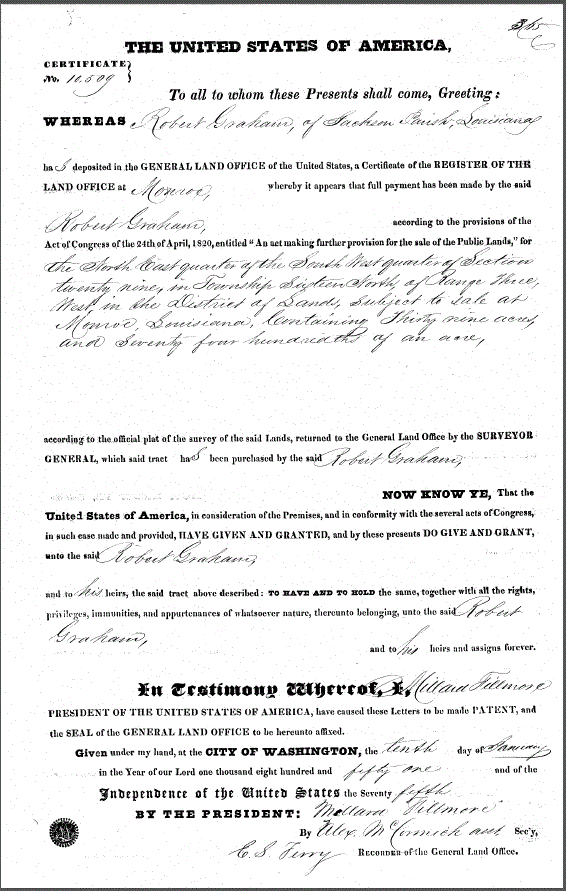 365
THE UNITED STATES OF AMERICA,
CERTIFICATE
No. 11.509
To all to whom these Presents shall come, Greeting:
WHEREAS Robert Graham, of Jackson Parish, Louisiana
haS deposited in the GENERAL LAND OFFICE of the United States, a Certificate of the REGISTER OF THE
LAND OFFICE at Monroe, whereby it appears that full payment has been made by the said
Robert Graham, according to the provisions of the
Act of Congress of the 24th of April, 1820, entitled "An act making further provision for the sale of the Public Lands," for
the North East quarter of the South West quarter of Section
twenty nine, in Township Sixteen North, of Range Three,
West, in the District of Lands, Subject to Sale at
Monroe, Louisiana, Containing Thirty nine acres,
and Seventy four hundredths of an acre,
according to the official plat of the survey of the said Lands, returned to the General Land Office by the SURVEYOR
GENERAL, which said tract haS been purchased by the said Robert Graham,
NOW KNOW YE, That the
United States of America, in consideration of the Premises, and in conformity with the several acts of Congress,
in such case made and provided, HAVE GIVEN AND GRANTED, and by these presents DO GIVE AND GRANT,
unto the said Robert Graham,
and to his heirs, the said tract above described: TO HAVE AND TO HOLD the same, together with all the rights,
privileges, immunities, and appurtenances of whatsoever nature, thereunto belonging, unto the said Robert
Graham, and to his heirs and assigns forever.
In Testimony Whereof, I, Millard Fillmore
PRESIDENT OF THE UNITED STATES OF AMERICA, have caused these Letters to be made PATENT, and
the SEAL of the GENERAL LAND OFFICE to be hereunto affixed.
Given under my hand, at the CITY OF WASHINGTON, the tenth day of January
in the Year of our Lord one thousand eight hundred and fifty one and of the
Independence of the United States the Seventy fifth
BY THE PRESIDENT: Millard Fillmore
By Alex. McCormick asst Sec'y,
C. S. Terry RECORDER of the General Land Office.